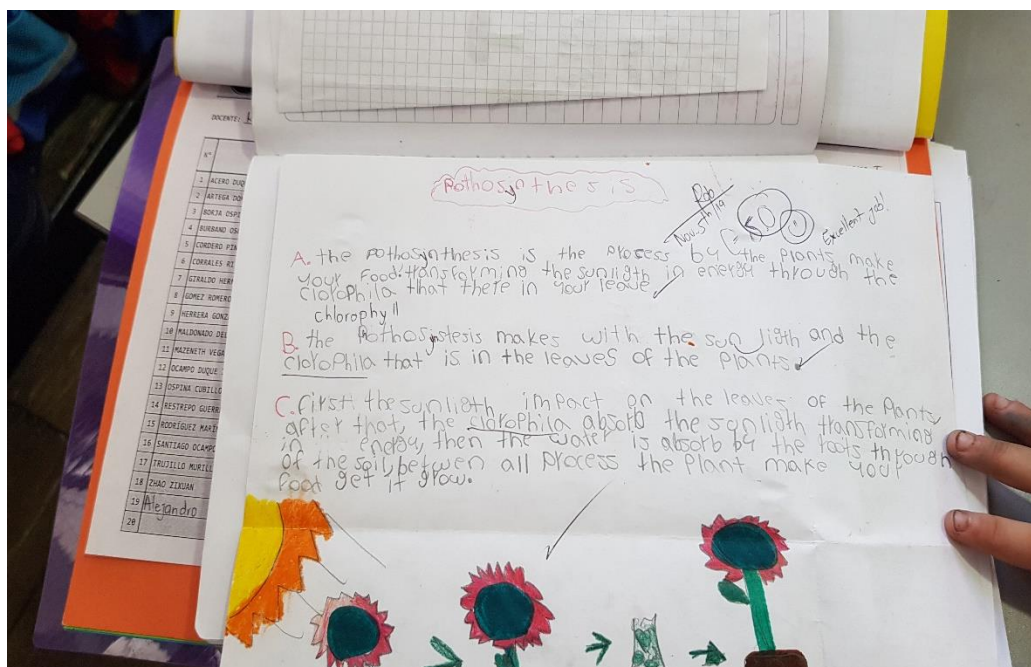 DOCENTE:
N°
1 ACERO DUQ
2 ARTEGA DO
3 BORJA OSPI
4 BURBANO OS
5 CORDERO PIN
6 CORRALES RI
7 GIRALDO HER
8 GOMEZ ROMERO
9 HERRERA GONZ
10 MALDONADO DE
11 MAZENETH VEGA
12 OCAMPO DUQUE
13 OSPINA CUBILLO
14 RESTREPO GUERR
15 RODRÍGUEZ MARI
16 SANTIAGO OCAMPO
17 TRUJILLO MURILL
18 ZHAO ZIXUAN
19 Alejandro
20
Pothosynthesis
Nov. 5th/19
5.0
Excellent job!
A. the pothosynthesis is the process by the plants make
your food transforming the sunligth in energy through the
clorophila that there in your leave
chlorophyll
B. the Pothosyntesis makes with the sun ligth and the
clorophila that is in the leaves of the plants.
C. first the sunligth impact on the leaves of the plants
after that, the clorophila absorb the sunligth transforming
in energy, then the water is absorb by the roots through
of the soil, betwen all process the plant make your
food get it grow.